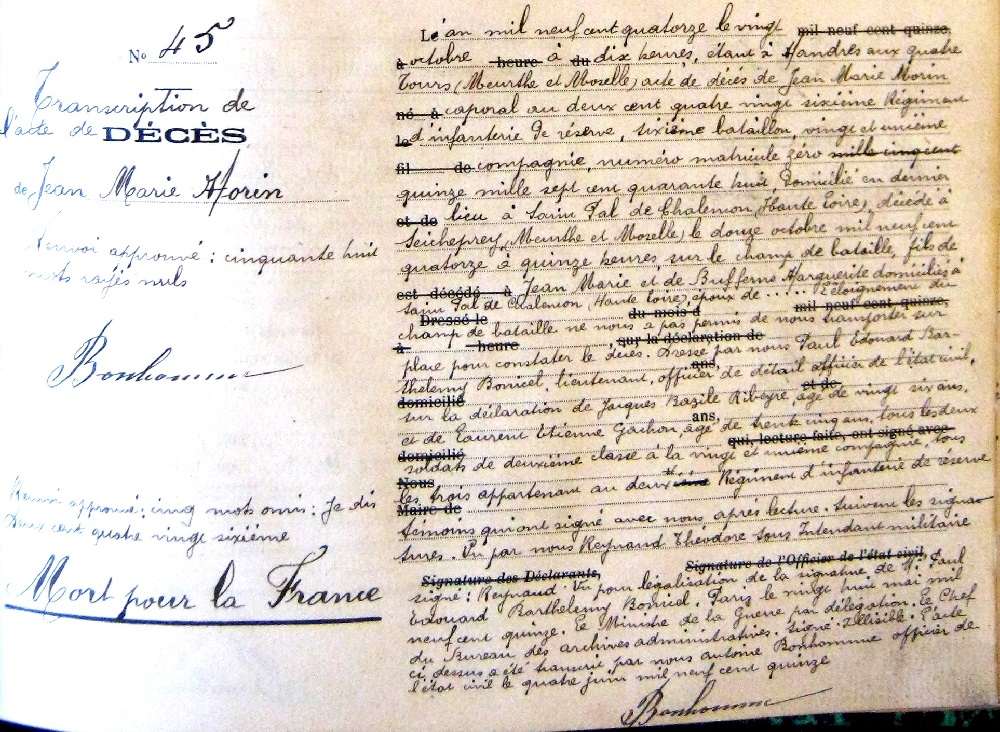 N° 45
Transcription de
l'acte de DÉCÈS
de Jean Marie Morin
Renvoi approuvé : cinquante huit
mots rayés nuls
Bonhomme
Renvoi approuvé : cinq mots omis : je dis
Deux cent quatre vingt sixième
Mort pour la France
L'an mil neuf cent quatorze le vingt mil neuf cent quinze,
à octobre heure à du dix heures, étant à Handres aux quatre
Tours (Meurthe et Moselle) acte de décès de Jean Marie Morin
né à caporal au deux cent quatre vingt sixième Régiment
le d'infanterie de réserve, sixième bataillon, vingt et unième
fil de compagnie, numéro matricule zéro mille cinq cent
quinze mille sept cent quarante huit, domicilié en dernier
et de lieu à Saint Pal de Chalencon (Haute Loire), décédé à
Seicheprey (Meurthe et Moselle) le douze octobre mil neuf cent
quatorze à quinze heures, sur le champ de bataille, fils de
est décédé à Jean Marie et de Bufferne Marguerite domiciliés à
Saint Pal de Chalencon (Haute Loire), époux de ..... L'éloignement du
Dressé le du mois d mil neuf cent quinze,
champ de bataille ne nous a pas permis de nous transporter sur
à heure , sur la déclaration de
place pour constater le décès. Dressé par nous Paul Edouard Bar-
ans,
thelemy Bonicel, lieutenant, officier de détail officier de l'état civil,
domicilié et de
sur la déclaration de Jacques Bazile Ribeyre, âgé de vingt six ans,
ans,
et de Laurent Etienne Gachon, âgé de trente cinq ans, tous les deux
domicilié qui, lecture faite, ont signé avec
soldats de deuxième classe à la vingt et unième compagnie, tous
Nous
les trois appartenant au deux Régiment d'infanterie de réserve
Maire de
témoins qui ont signé avec nous après lecture. Suivent les signa-
tures. Vu par nous Reynaud Théodore Sous Intendant militaire
Signature des Déclarants, Signature de l'Officier de l'état civil,
signé : Reynaud. Vu pour légalisation de la signature de Mr Paul
Edouard Barthelemy Bonicel. Paris le vingt huit mai mil
neuf cent quinze. Le Ministre de la Guerre par délégation. Le Chef
du Bureau des archives administratives. Signé : Illisible. L'acte
ci dessus a été transcrit par nous Antoine Bonhomme officier de
l'état civil le quatre juin mil neuf cent quinze
Bonhomme